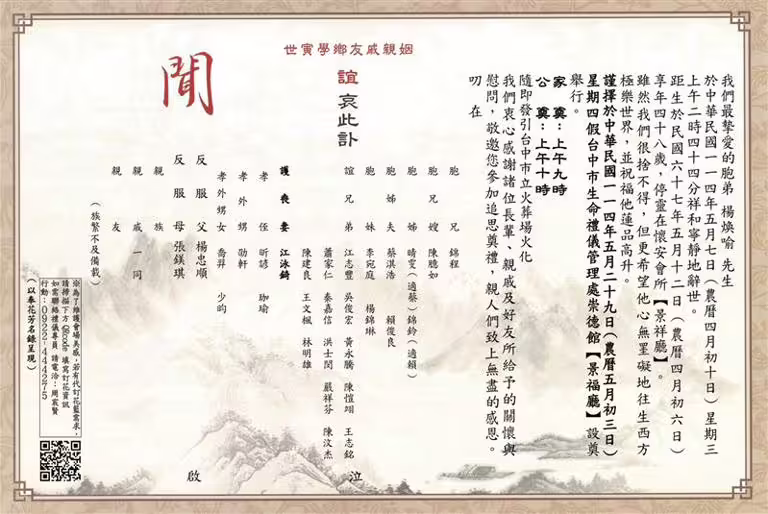 我們最摯愛的胞弟 楊煥喻 先生
於中華民國一一四年五月七日（農曆四月初十日）星期三
上午二時四十四分祥和寧靜地辭世。
距生於民國六十七年五月十二日（農曆四月初六日）
享年四十八歲，停靈在懷安會所【景祥廳】。
雖然我們很捨不得，但更希望他心無罣礙地往生西方
極樂世界，並祝福他蓮品高升。
謹擇於中華民國一一四年五月二十九日（農曆五月初三日）
星期四假台中市生命禮儀管理處崇德館【景福廳】設奠
舉行。
家 奠：上午九時
公 奠：上午十時
隨即發引台中市立火葬場火化
我們衷心感謝諸位長輩、親戚及好友所給予的關懷與
慰問，敬邀您參加追思奠禮，親人們致上無盡的感恩。
叨 在
姻親戚友鄉學寅世
誼 哀此訃
聞
胞兄 錦程
胞兄嫂 陳聰如
胞姊 晴雯（適蔡） 錦鈴（適賴）
胞姊夫 蔡淇浩 賴俊良
胞妹 李宛庭 楊錦琳
誼兄弟 江志豐 吳俊宏 黃永騰 陳愷翊 王志銘
蕭家仁 秦嘉信 洪士閔 嚴祥芬 陳汶杰
陳建良 王文楓 林明雄
護喪妻 江泳錡
孝姪 昕諺 珈瑜
孝外甥 劭軒
孝外甥女 喬羿 少昀
反服父 楊忠順
反服母 張鎂琪
親族
親戚 一同
親友
（族繁不及備載）
泣 啟
※為了維護會場美感，若有代訂花籃需求，
請掃描下方 QRcode 填寫訂花資訊
如需聯絡禮儀專員 請電洽：周宸賢
行動：0922-444275
（以奉花芳名錄呈現）